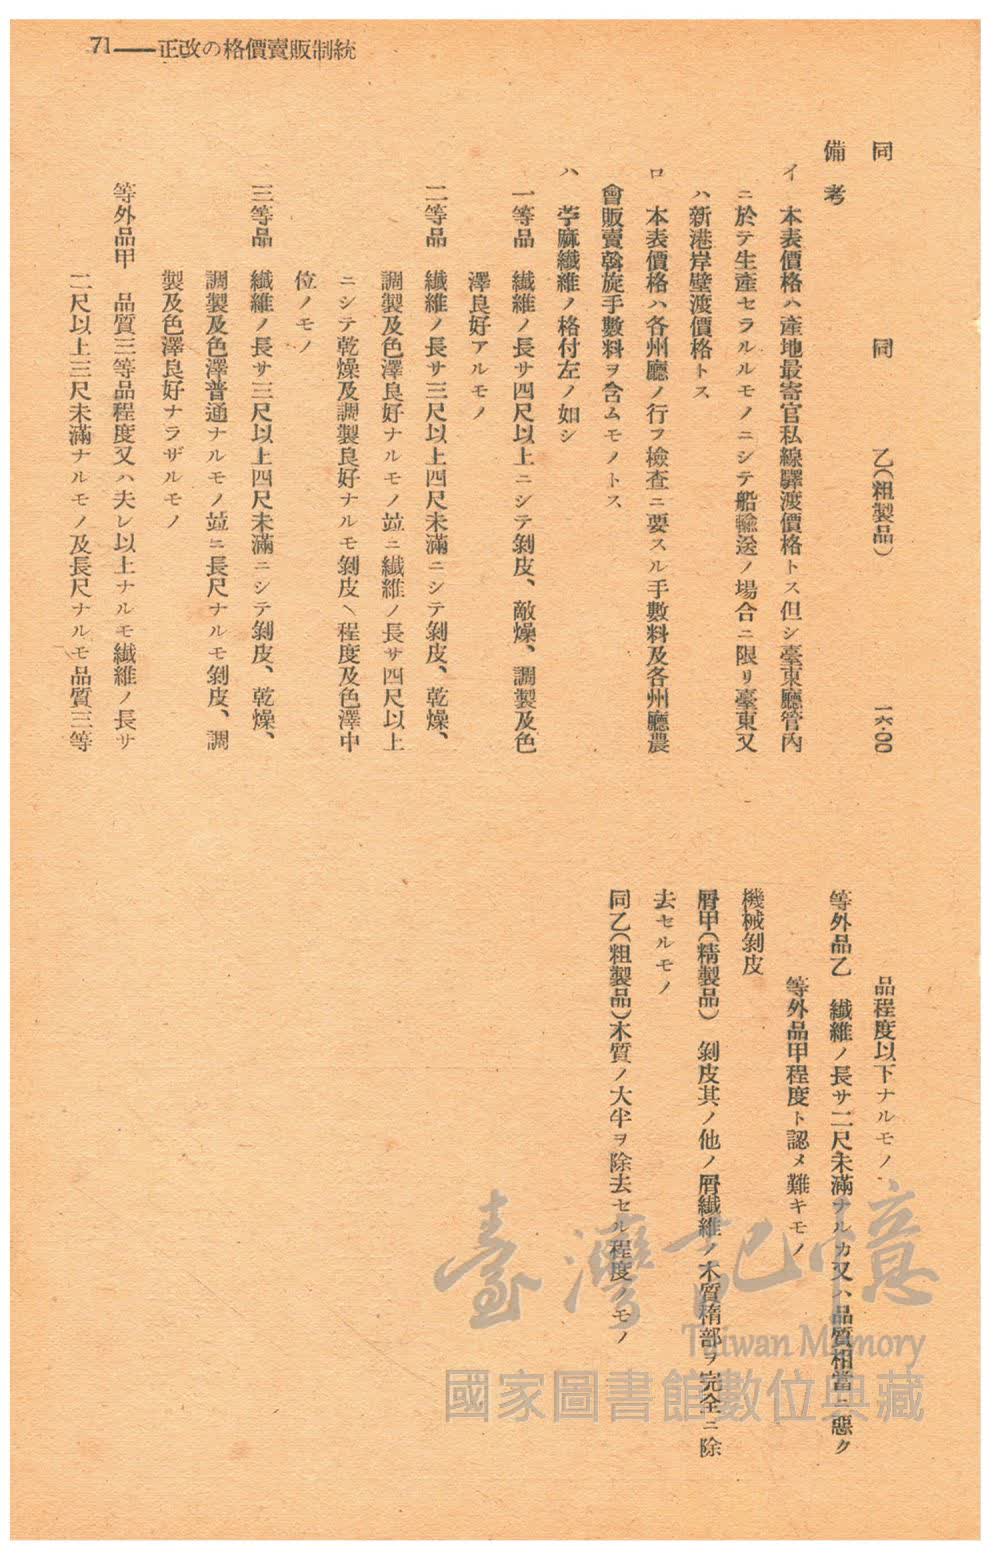 統制販賣價格の改正——71
同　同　乙(粗製品)　一六・〇〇
備考
イ　本表價格ハ產地最寄官私線驛渡價格トス但シ臺東廳管內
ニ於テ生產セラルルモノニシテ船輸送ノ場合ニ限リ臺東又
ハ新港岸壁渡價格トス
ロ　本表價格ハ各州廳ノ行フ檢查ニ要スル手數料及各州廳農
會販賣斡旋手數料ヲ含ムモノトス
ハ　苧麻纖維ノ格付左ノ如シ
一等品　纖維ノ長サ四尺以上ニシテ剝皮、敵燥、調製及色
澤良好アルモノ
二等品　纖維ノ長サ三尺以上四尺未滿ニシテ剝皮、乾燥、
調製及色澤良好ナルモノ竝ニ纖維ノ長サ四尺以上
ニシテ乾燥及調製良好ナルモ剝皮ヽ程度及色澤中
位ノモノ
三等品　纖維ノ長サ三尺以上四尺未滿ニシテ剝皮、乾燥、
調製及色澤普通ナルモノ竝ニ長尺ナルモ剝皮、調
製及色澤良好ナラザルモノ
等外品甲　品質三等品程度又ハ夫レ以上ナルモ纖維ノ長サ
二尺以上三尺未滿ナルモノ及長尺ナルモ品質三等
品程度以下ナルモノ
等外品乙　纖維ノ長サ二尺未滿ナルカ又ハ品質相當ニ惡ク
等外品甲程度ト認メ難キモノ
機械剝皮
屑甲(精製品)　剝皮其ノ他ノ屑纖維ノ木質楕部ヲ完全ニ除
去セルモノ
同乙(粗製品)木質ノ大半ヲ除去セル程度ノモノ
臺灣記憶
Taiwan Memory
國家圖書館數位典藏